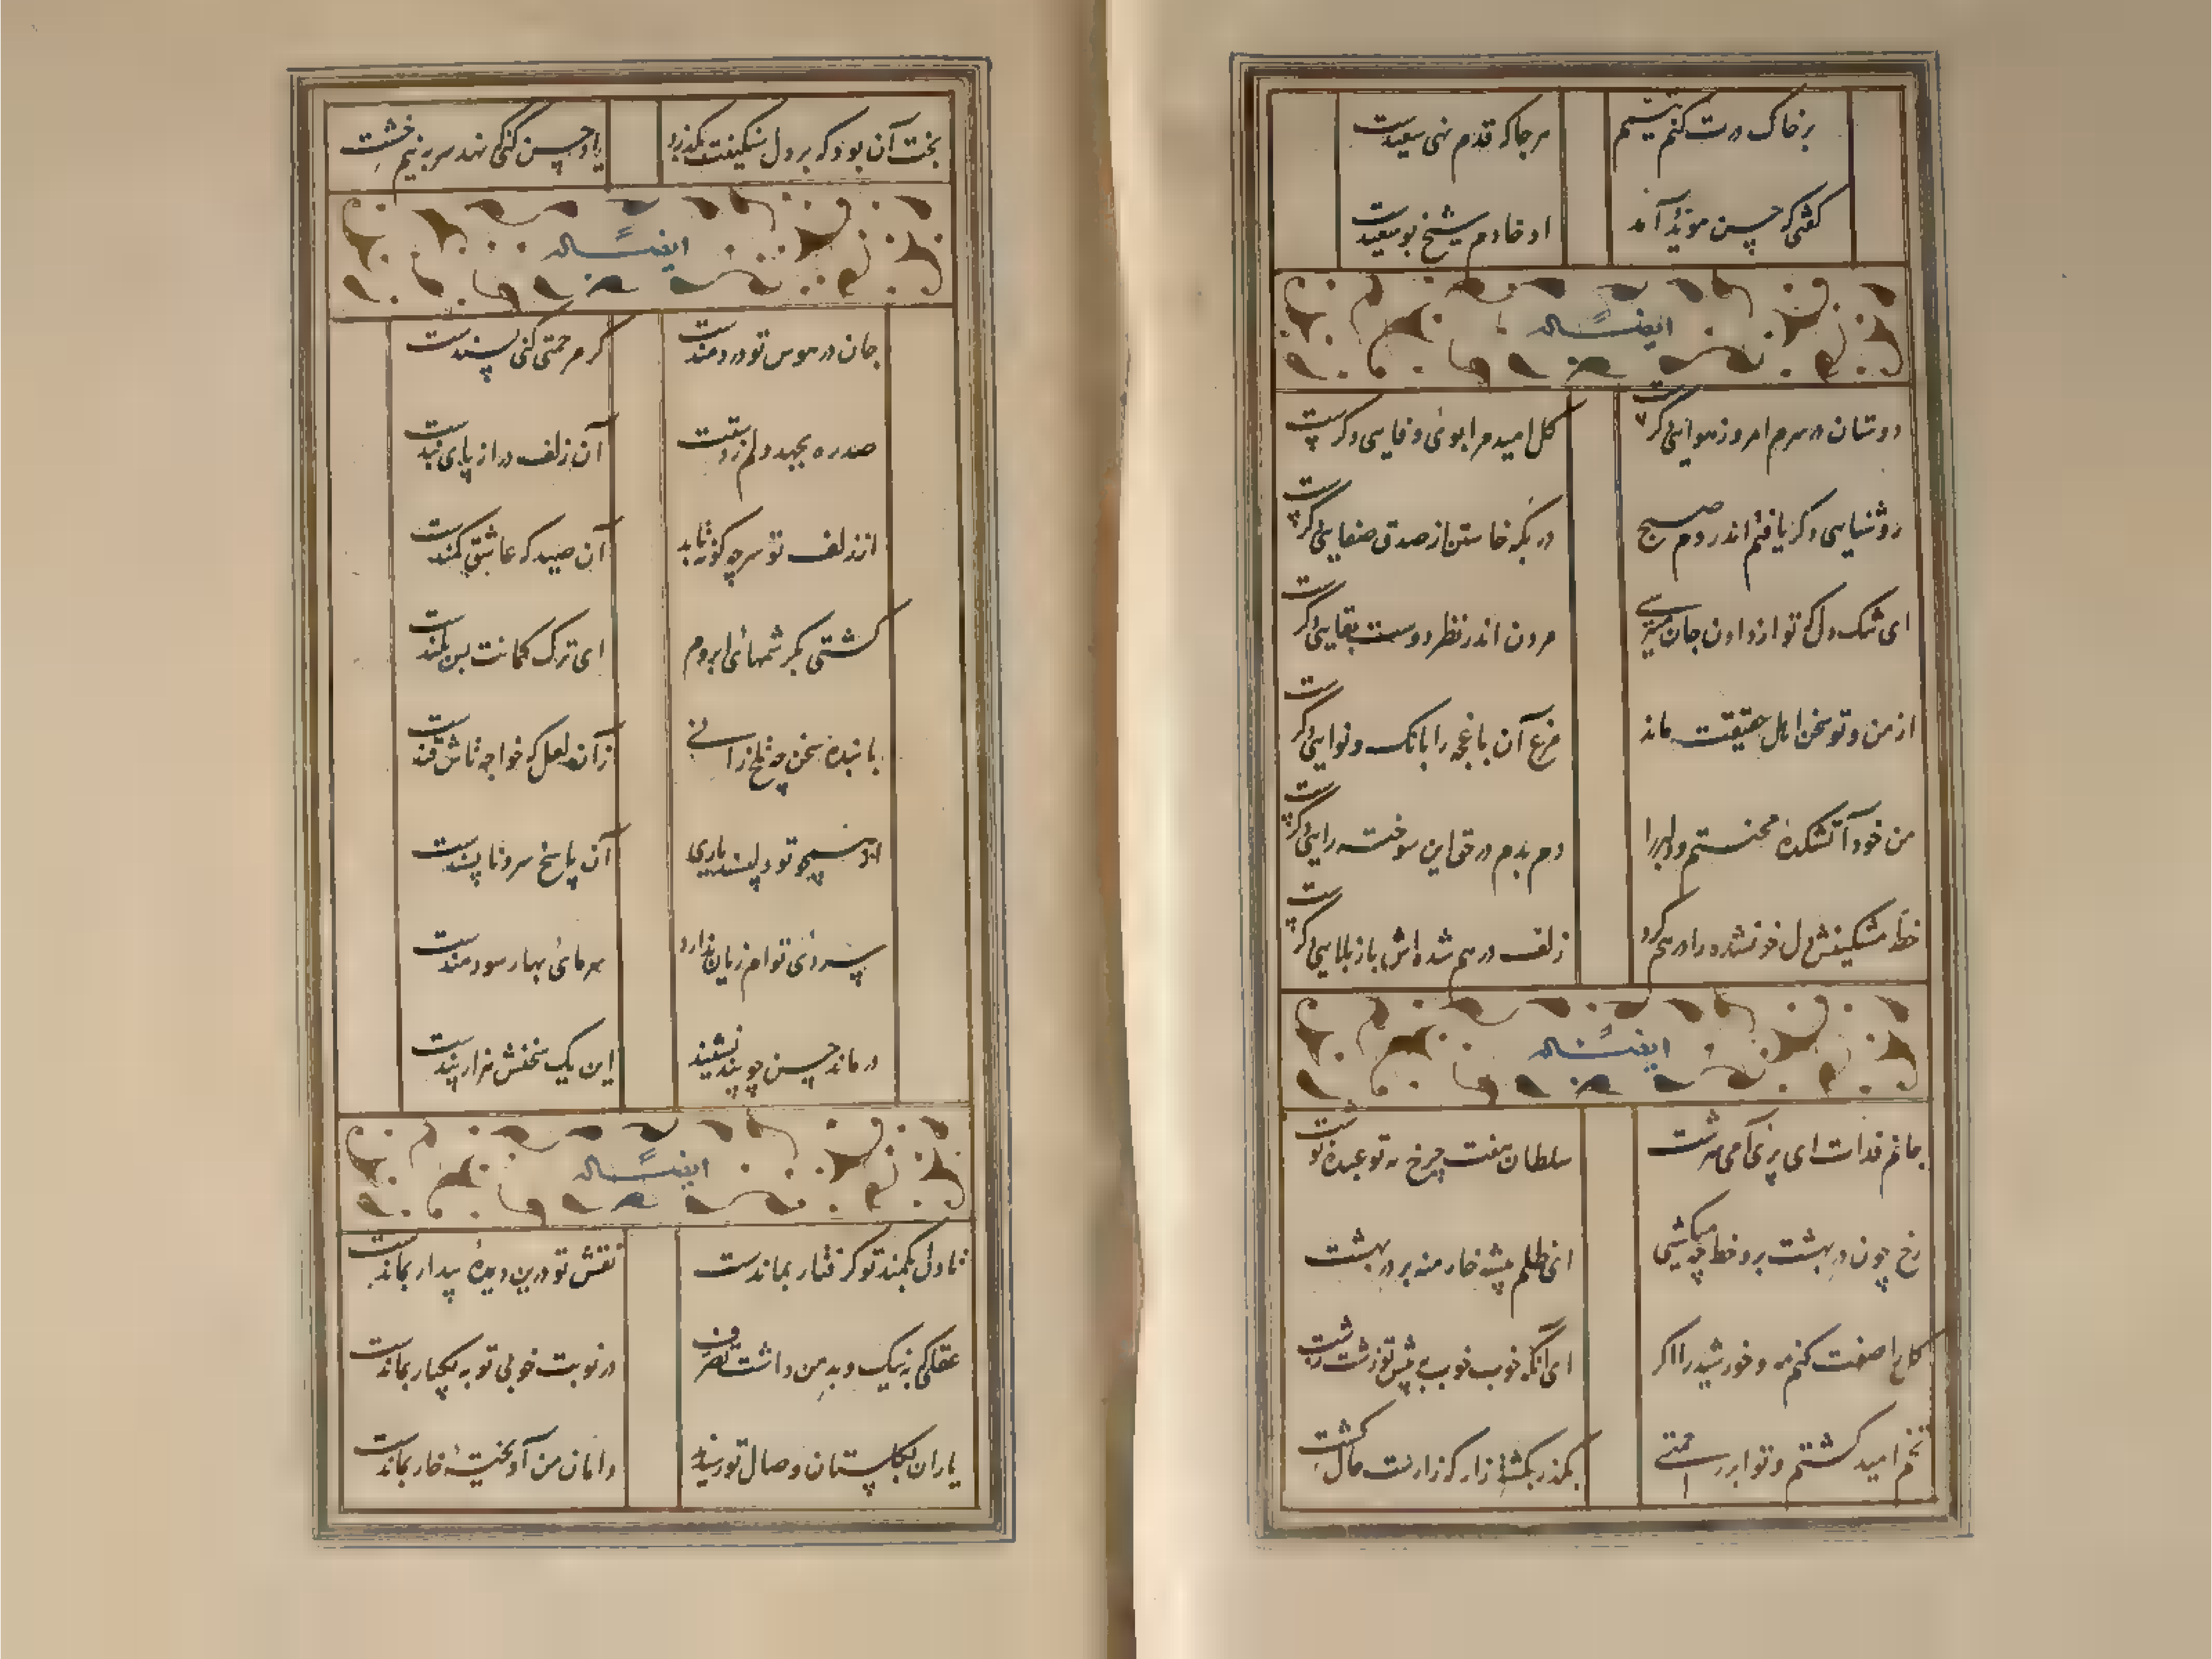 بر خاک درت کنم تیمم هر جا که قدم نهی سعیدست
گفتی که حسن مؤید آمد او خادم شیخ بوسعیدست
ایضاً له
دوستان در سرم امروز هوایی دگرست گل امید مرا بوی وفایی دگرست
روشنایی دگر یافتم اندر دم صبح در بگه خاستن از صدق صفایی دگرست
ای تنک دل که تو از دادن جان میترسی مردن اندر نظر دوست بقایی دگرست
از من و تو سخن اهل حقیقت ماند مرغ آن باغچه را بانک و نوایی دگرست
من خود آتشکده محنتم و دلبر را دم بدم در حق این سوخته رایی دگرست
خط مشکینش دل خونشده را درهم کرد زلف درهم شده اش باز بلایی دگرست
ایضاً له
جانم فدات ای پری آدمی سرشت سلطان هفت چرخ به تو عبده نوشت
رخ چون در بهشت برو خط چه میکشی ای ظلم پیشه خار منه بر در بهشت
صفت کنم مه و خورشید را اگر ای آنکه خوب خوب پیش تو زشت زشت
تخم امید کشتم و تو ابر رحمتی بگذر بکشت زار که زارست حال کشت
بخت آن بود که بر دل سنگینت بگذرد یاد حسن کنی نهد سر به نیم خشت
ایضاً له
جان در هوس تو دردمندست گر مرحمتی کنی پسندست
صد ره بجهد دلم ز دستت آن زلف دراز پای بندست
از زلف تو سر چگونه تابد آن صید که عاشق کمندست
کشتی بکرشمهای ابروم ای ترک کمانت بس بلندست
با بنده سخن چه تلخ رانی زان لعل که خواجه تاش قندست
از همچو تو دلپسند یاری آن پاسخ سرد ناپسندست
سردی توام زیان ندارد سرمای بهار سودمندست
درماند حسن چو پند نشنید این یک سخنش هزار پندست
ایضاً له
تا دل بکمند تو گرفتار بماندست نقش تو درین دیده بیدار بماندست
عقلی که به نیک و بد من داشت تصرف در نوبت خوبی تو به یکبار بماندست
یاران بگلستان وصال تو رسیدند دامان من آویخته خار بماندست